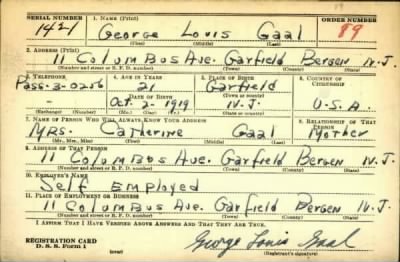 SERIAL NUMBER 1. NAME (Print) ORDER NUMBER
1421 George Louis Gaal 89
(First) (Middle) (Last)
2. ADDRESS (Print)
11 Columbus Ave. Garfield Bergen N.J.
(Number and street or R. F. D. number) (Town) (County) (State)
3. TELEPHONE 4. AGE IN YEARS 5. PLACE OF BIRTH 6. COUNTRY OF CITIZENSHIP
Pass-3-0256 21 Garfield
DATE OF BIRTH (Town or county)
Oct. 2 - 1919 N.J. U.S.A.
(Exchange) (Number) (Mo.) (Day) (Yr.) (State or country)
7. NAME OF PERSON WHO WILL ALWAYS KNOW YOUR ADDRESS 8. RELATIONSHIP OF THAT PERSON
Mrs. Catherine Gaal Mother
(Mr., Mrs., Miss) (First) (Middle) (Last)
9. ADDRESS OF THAT PERSON
11 Columbus Ave. Garfield Bergen N.J.
(Number and street or R. F. D. number) (Town) (County) (State)
10. EMPLOYER'S NAME
Self Employed
11. PLACE OF EMPLOYMENT OR BUSINESS
11 Columbus Ave. Garfield Bergen N.J.
(Number and street or R. F. D. number) (Town) (County) (State)
I AFFIRM THAT I HAVE VERIFIED ABOVE ANSWERS AND THAT THEY ARE TRUE.
REGISTRATION CARD
D. S. S. Form 1 George Louis Gaal
(over) (Registrant's signature)